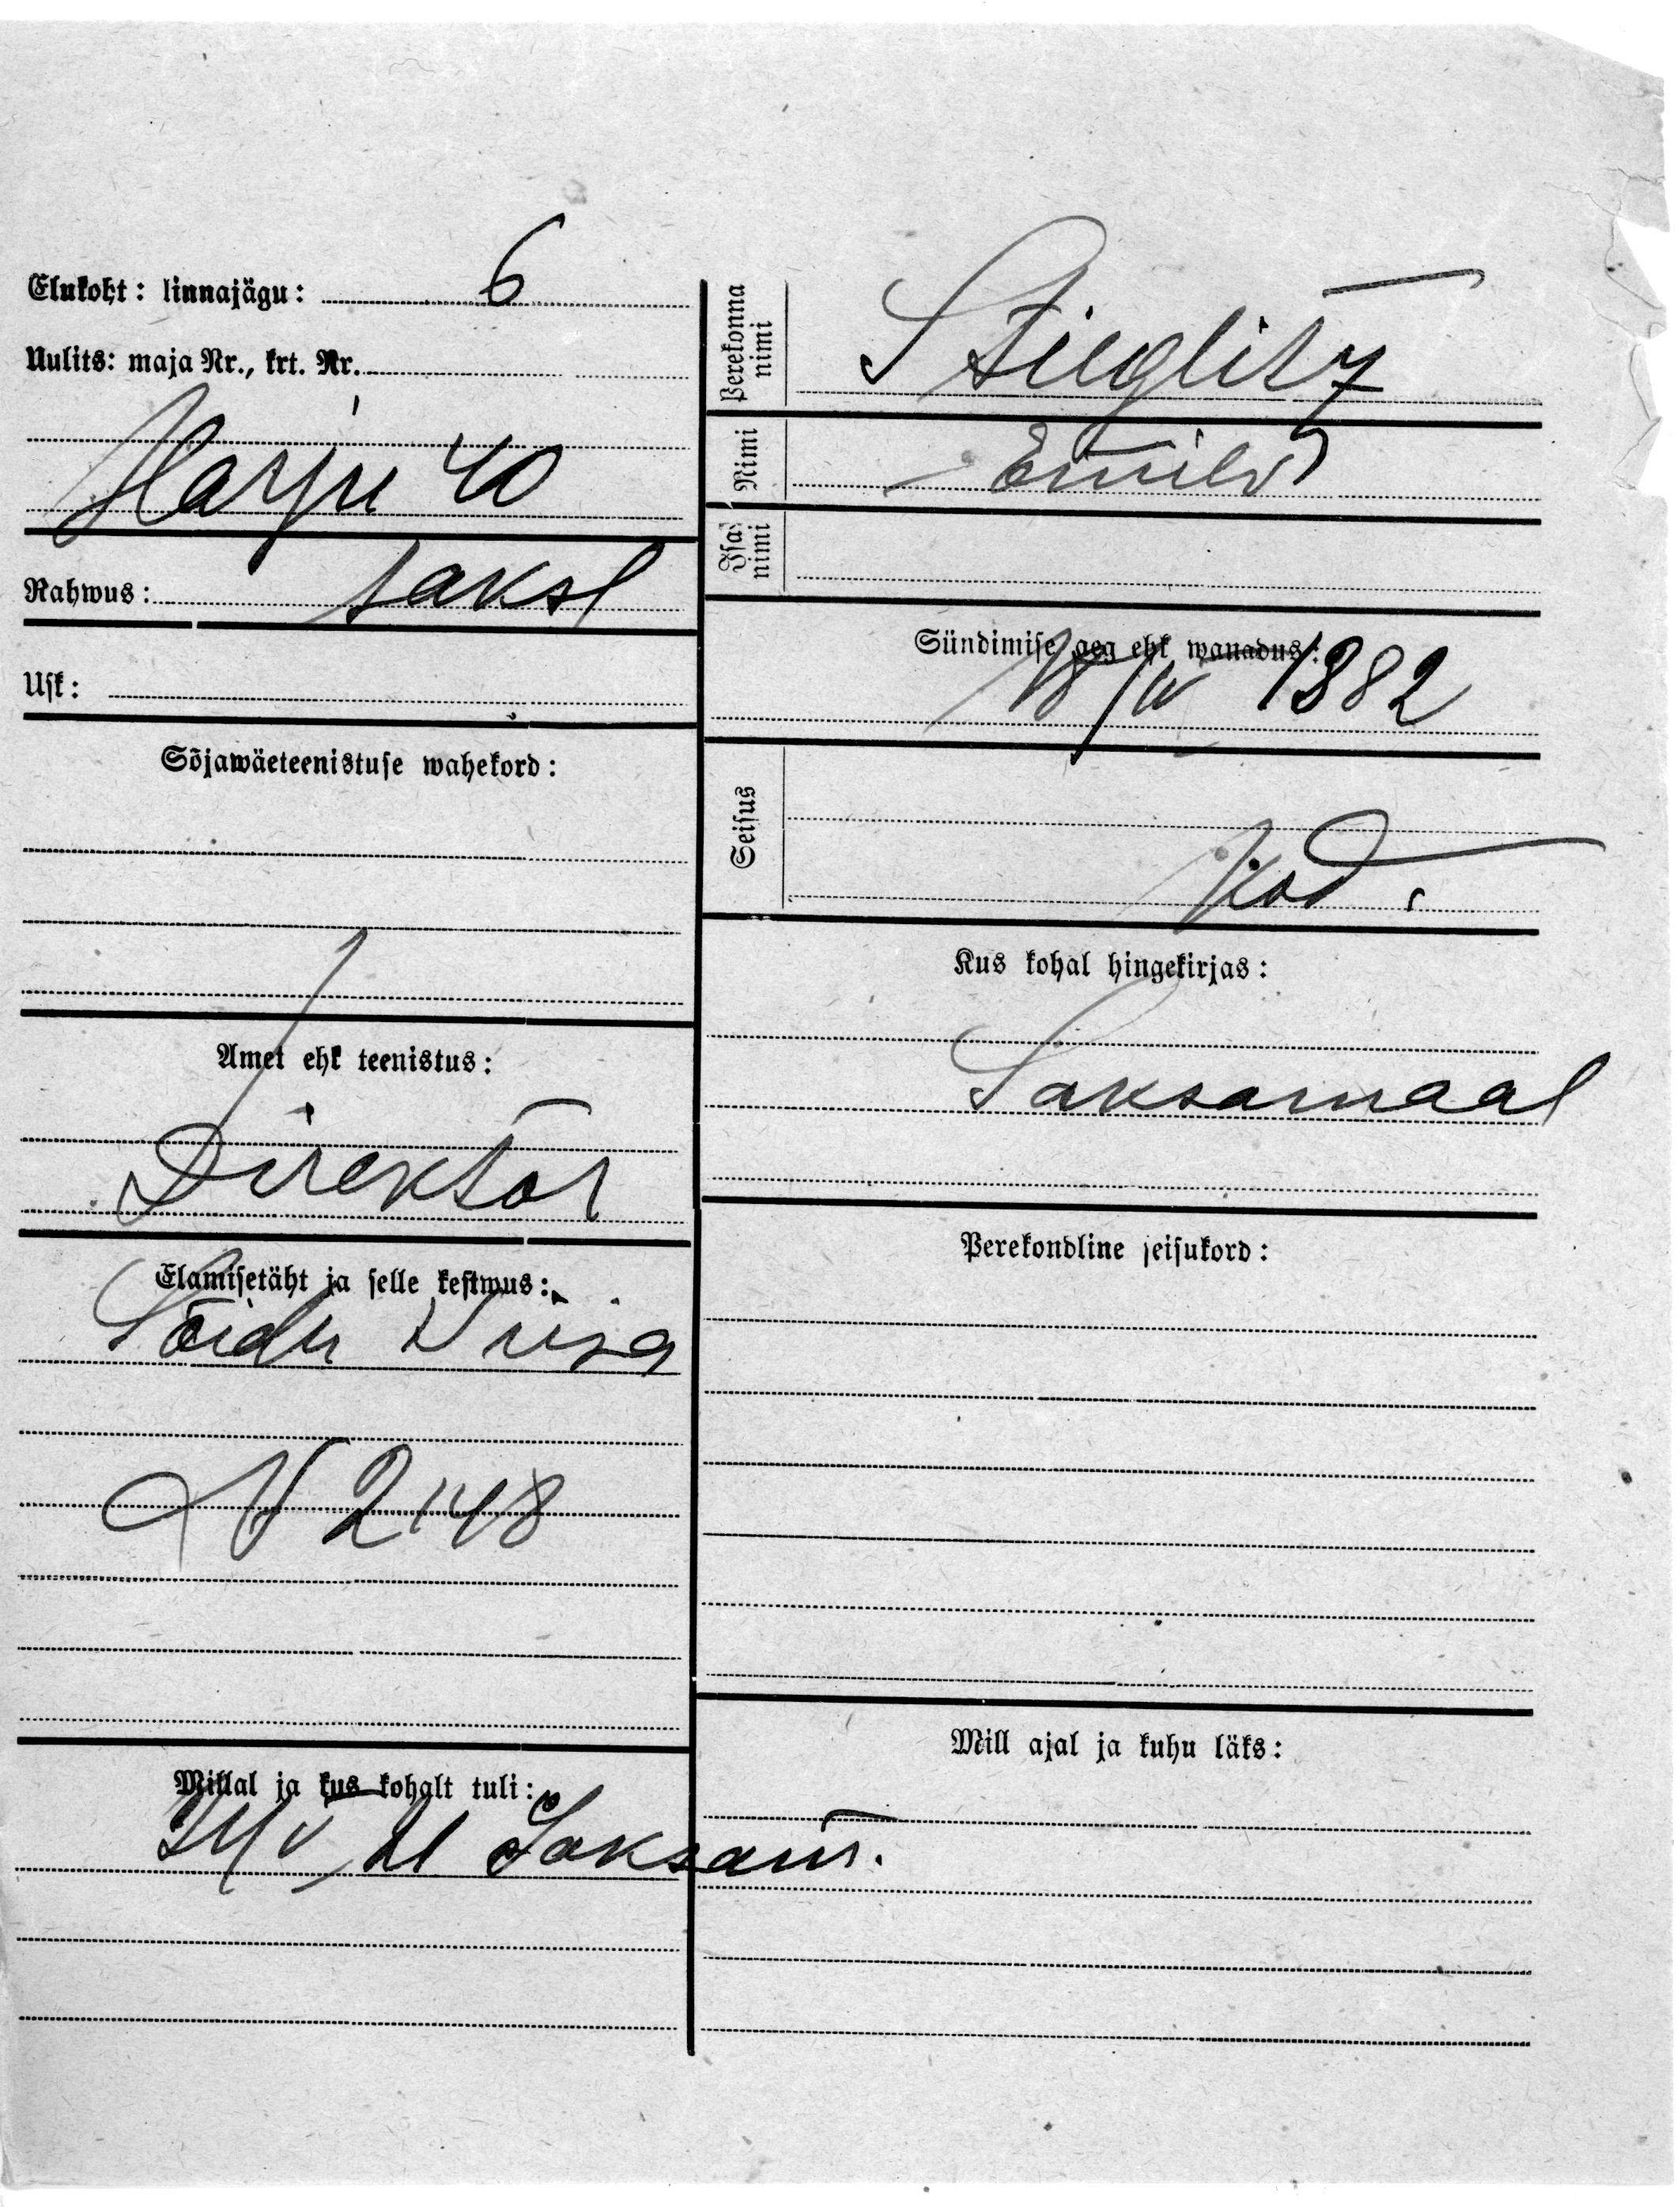 Elukoht: linnajägu: 6
Uulits: maja Nr., krt. Nr.
Harju 40
Rahwus: saksl
Usk:
Sõjawäeteenistuse wahekord:
Amet ehk teenistus:
Direktor
Elamisetäht ja selle kestwus:
Sõidu Wiisa
N 2148
Millal ja kus kohalt tuli:
21 Saksam.
Perekonna nimi
Stieglitz
Nimi
Emil
Isa nimi
Sündimise aeg ehk wanadus:
18/IV 1882
Seisus
Kod.
Kus kohal hingekirjas:
Saksamaal
Perekondline seisukord:
Mill ajal ja kuhu läks: